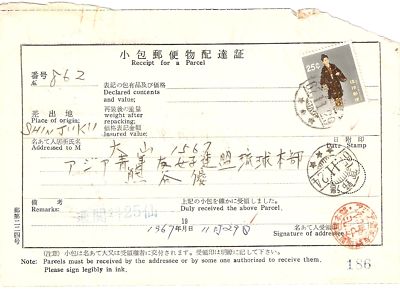 小包郵便物配達証
Receipt for a Parcel
番号 862
No.
表記の包有品及び価格
Declared contents
and value;
再装後の重量
weight after
repacking;
価格表記金額
Insured value;
差出地
Place of origin:
SHINJUKU
25¢
琉球郵便
名あて人住所氏名
Addressed to M
日附印
Date Stamp
大山 1567
アジア青年友好連盟琉球本部
熊谷
備考
Remarks:
25仙
上記の小包を確かに受領しました。
Duly received the above Parcel.
19
1967年 月 日 11月29日
名あて人受領印
Signature of addressee:
(注意) 小包は名あて人又は受領権者に交付されます。受領印は明瞭に記して下さい。
Note: Parcels must be received by the addressee or by some one authorised to receive them.
Please sign legibly in ink.
186